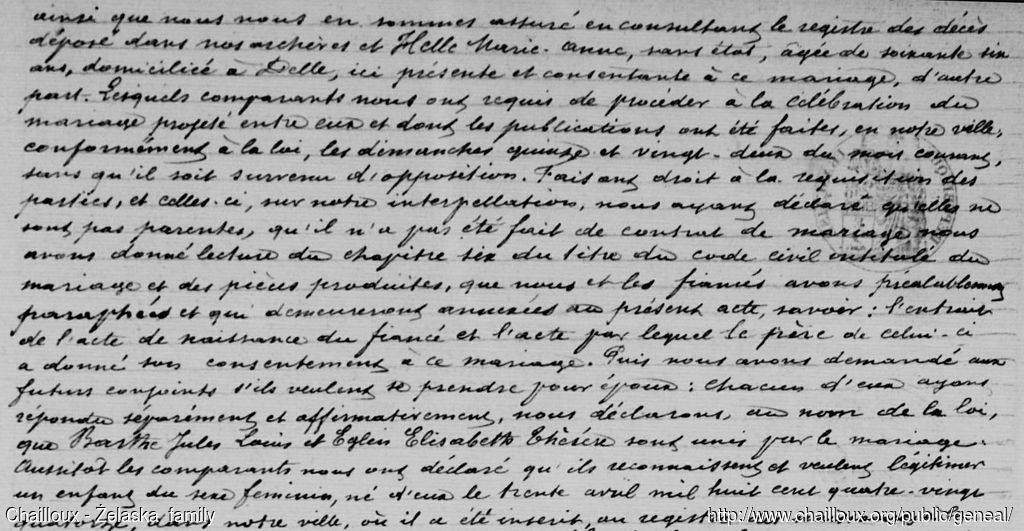 ainsi que nous nous en sommes assuré en consultant le registre des décès
déposé dans nos archives et Helle Marie-Anne, sans état, âgée de soixante six
ans, domiciliée à Delle, ici présente et consentante à ce mariage, d'autre
part. Lesquels comparants nous ont requis de procéder à la célébration du
mariage projeté entre eux et dont les publications ont été faites, en notre ville,
conformément à la loi, les dimanches quinze et vingt-deux du mois courant,
sans qu'il soit survenu d'opposition. Faisant droit à la réquisition des
parties, et celles-ci, sur notre interpellation, nous ayant déclaré qu'elles ne
sont pas parentes, qu'il n'a pas été fait de contrat de mariage nous
avons donné lecture du chapitre six du titre du code civil intitulé du
mariage et des pièces produites, que nous et les fiancés avons préalablement
paraphées et qui demeureront annexées au présent acte, savoir : l'extrait
de l'acte de naissance du fiancé et l'acte par lequel le père de celui-ci
a donné son consentement à ce mariage. Puis nous avons demandé aux
futurs conjoints s'ils veulent se prendre pour époux : chacun d'eux ayant
répondu séparément et affirmativement, nous déclarons, au nom de la loi,
que Barthe Jules Louis et Eglein Elisabeth Thérèse sont unis par le mariage.
Aussitôt les comparants nous ont déclaré qu'ils reconnaissent et veulent légitimer
un enfant du sexe féminin, né d'eux le trente avril mil huit cent quatre-vingt
notre ville, où il a été inscrit, au
Chailloux - Želaska family
http://www.chailloux.org/public/geneal/